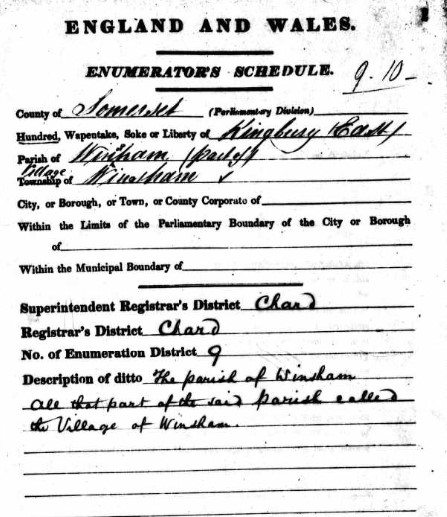 ENGLAND AND WALES.
ENUMERATOR'S SCHEDULE. 9.10
County of Somerset (Parliamentary Division)
Hundred, Wapentake, Soke or Liberty of Kingsbury East
Parish of Winsham (part of)
Village
Township of Winsham
City, or Borough, or Town, or County Corporate of
Within the Limits of the Parliamentary Boundary of the City or Borough
of
Within the Municipal Boundary of
Superintendent Registrar's District Chard
Registrar's District Chard
No. of Enumeration District 9
Description of ditto The parish of Winsham
All that part of the said parish called
the Village of Winsham.